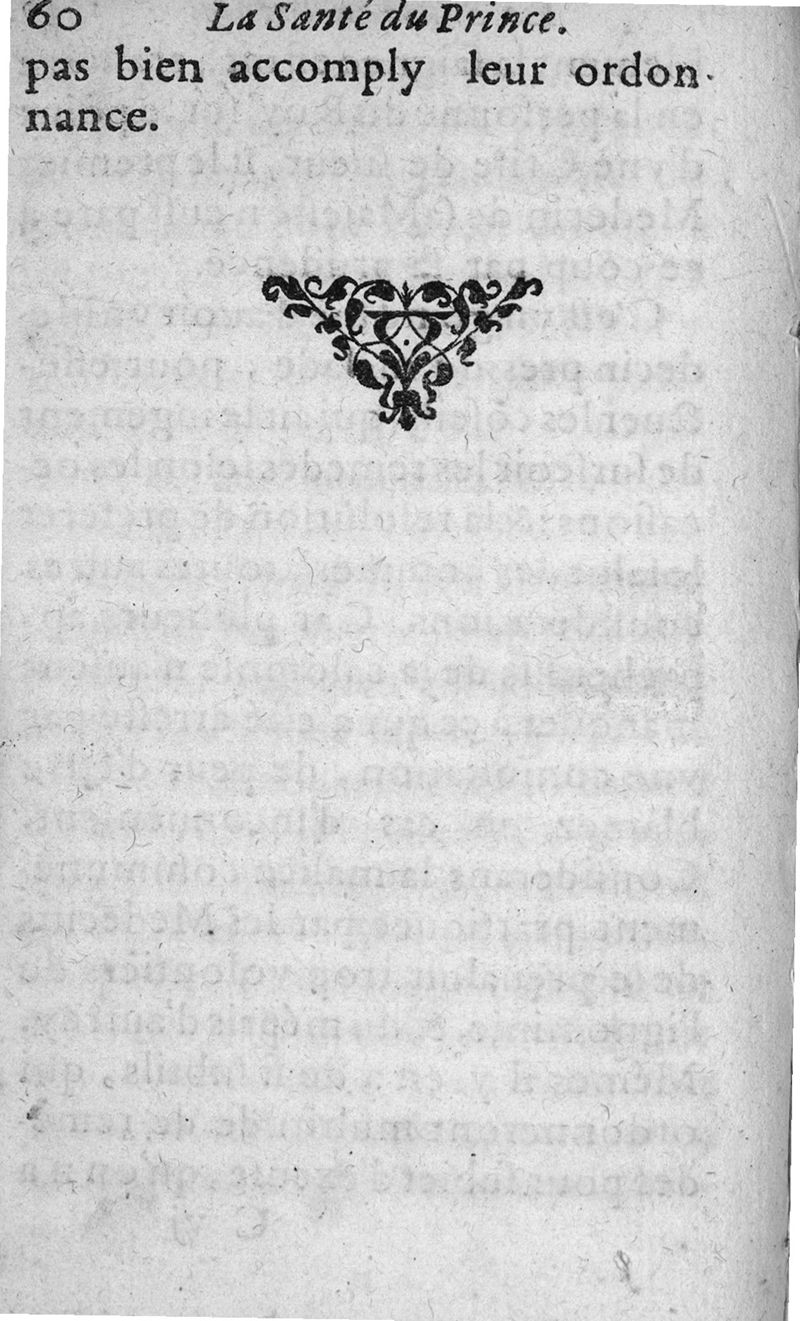 60 La Santé du Prince.
pas bien accomply leur ordon-
nance.